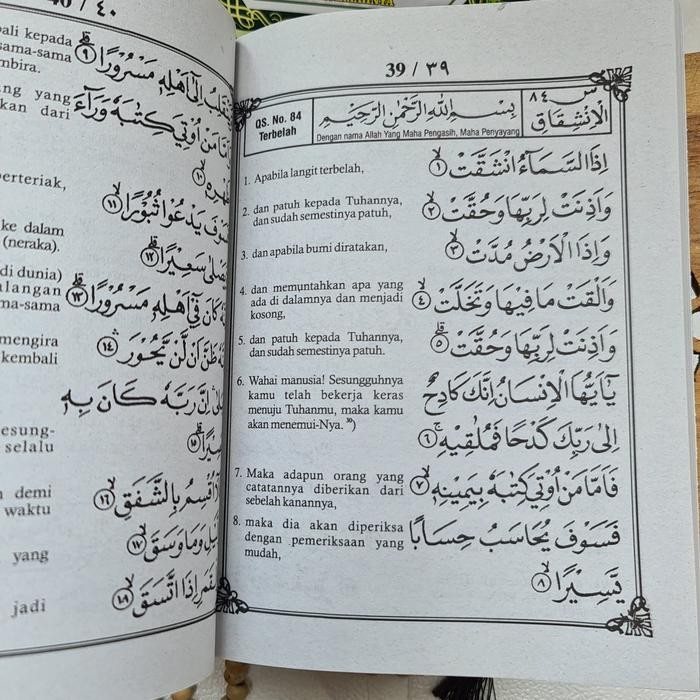 39 / ٣٩
QS. No. 84
Terbelah
بِسْــمِ اللهِ الرَّحْمٰنِ الرَّحِيْـمِ
Dengan nama Allah Yang Maha Pengasih, Maha Penyayang
س ٨٤
الْاِنْشِقَاق
اِذَا السَّمَاۤءُ انْشَقَّتْۙ ١
1. Apabila langit terbelah,
وَاَذِنَتْ لِرَبِّهَا وَحُقَّتْۙ ٢
2. dan patuh kepada Tuhannya,
dan sudah semestinya patuh,
وَاِذَا الْاَرْضُ مُدَّتْۙ ٣
3. dan apabila bumi diratakan,
وَاَلْقَتْ مَا فِيْهَا وَتَخَلَّتْۙ ٤
4. dan memuntahkan apa yang
ada di dalamnya dan menjadi
kosong,
وَاَذِنَتْ لِرَبِّهَا وَحُقَّتْۗ ٥
5. dan patuh kepada Tuhannya,
dan sudah semestinya patuh.
يٰٓاَيُّهَا الْاِنْسَانُ اِنَّكَ كَادِحٌ
اِلٰى رَبِّكَ كَدْحًا فَمُلٰقِيْهِۚ ٦
6. Wahai manusia! Sesungguhnya
kamu telah bekerja keras
menuju Tuhanmu, maka kamu
akan menemui-Nya.
فَاَمَّا مَنْ اُوْتِيَ كِتٰبَهٗ بِيَمِيْنِهٖۙ ٧
7. Maka adapun orang yang
catatannya diberikan dari
sebelah kanannya,
فَسَوْفَ يُحَاسَبُ حِسَابًا
يَّسِيْرًاۙ ٨
8. maka dia akan diperiksa
dengan pemeriksaan yang
mudah,
/ ٤٠
kepada
sama-sama
اِلٰٓى اَهْلِهٖ مَسْرُوْرًاۗ ٩
yang
dari
مَنْ اُوْتِيَ كِتٰبَهٗ وَرَاۤءَ
١٠
يَدْعُوْا ثُبُوْرًاۙ ١١
ke dalam
(neraka).
سَعِيْرًاۗ ١٢
di dunia)
كَانَ فِيْٓ اَهْلِهٖ مَسْرُوْرًاۗ ١٣
kembali
ظَنَّ اَنْ لَّنْ يَّحُوْرَ ١٤
اِنَّ رَبَّهٗ كَانَ بِهٖ
١٥
selalu
demi
waktu
اُقْسِمُ بِالشَّفَقِۙ ١٦
yang
وَمَا وَسَقَۙ ١٧
jadi
اِذَا اتَّسَقَۙ ١٨